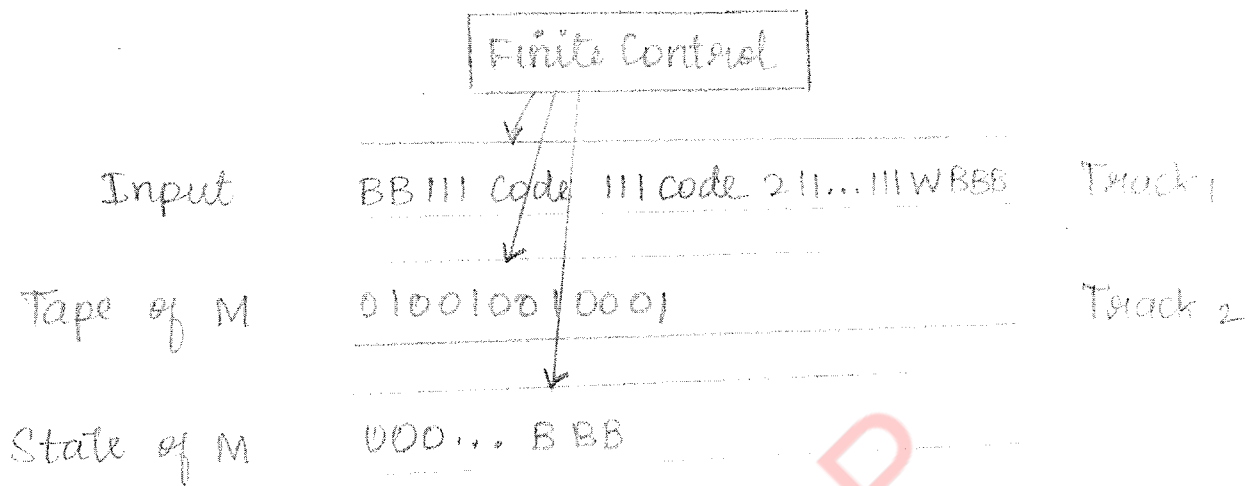 Finite Control
Input BB111 Code 111 code 211...111WBBB Track 1
Tape of M 010010010001 Track 2
State of M 000... BBB